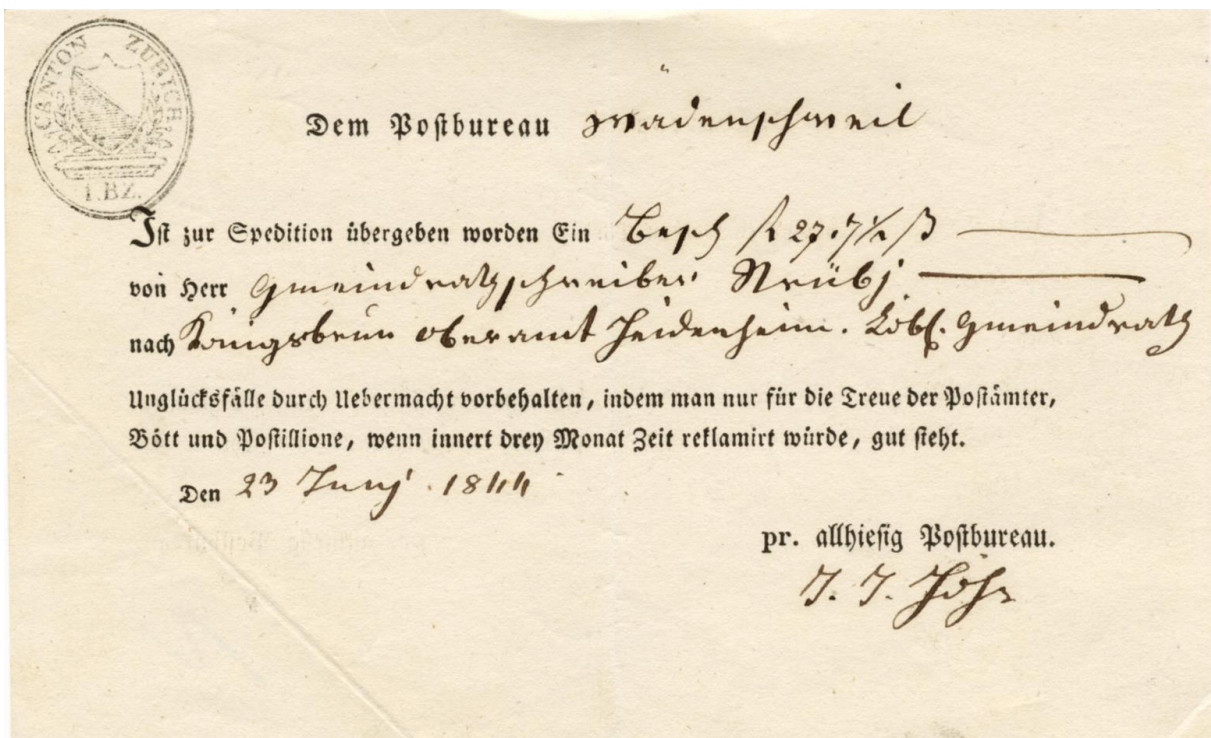 CANTON ZÜRICH.
1.BZ.
Dem Postbureau Wädenschweil
Ist zur Spedition übergeben worden Ein Besch f 27.7½ ß
von Herr Gmeindrathschreiber Strübj
nach Königsbrun Oberamt Heidenheim. Löbl. Gmeindrath
Unglücksfälle durch Uebermacht vorbehalten, indem man nur für die Treue der Postämter,
Bött und Postillione, wenn innert drey Monat Zeit reklamirt würde, gut steht.
Den 23 Junj. 1844
pr. allhiesig Postbureau.
J. J. Höhn